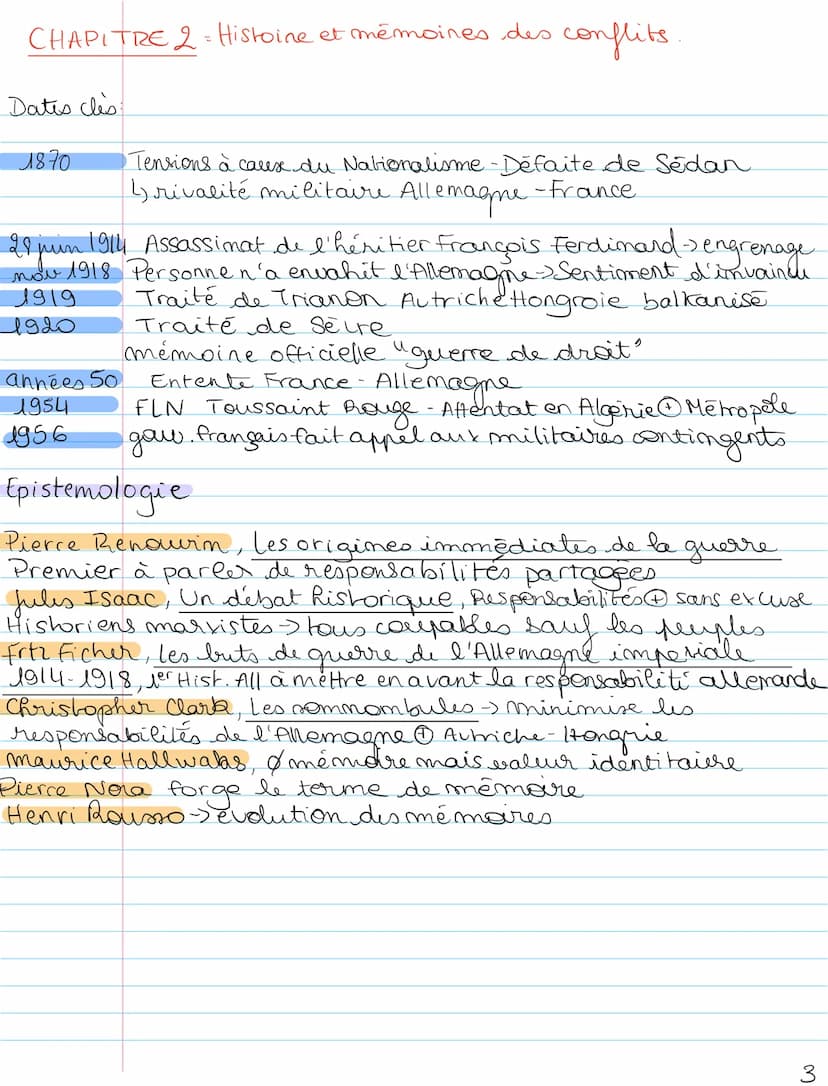 CHAPITRE 2 = Histoire et mémoires des conflits.
Dates clès:
1870 Tensions à cause du Nationalisme - Défaite de Sédan
↳ rivalité militaire Allemagne - France
28 juin 1914 Assassinat de l'héritier François Ferdinand -> engrenage
nov 1918 Personne n'a envahit l'Allemagne -> Sentiment d'invaincu
1919 Traité de Trianon Autriche Hongroie balkanisé
1920 Traité de Sèvre
mémoire officielle "guerre de droit"
années 50 Entente France - Allemagne
1954 FLN Toussaint Rouge - Attentat en Algérie ⊕ Métropole
1956 gouv. français fait appel aux militaires contingents
Epistemologie
Pierre Renouvin, Les origines immédiates de la guerre
Premier à parler de responsabilités partagées
Jules Isaac, Un débat historique, Responsabilités ⊕ sans excuse
Historiens marxistes -> tous coupables sauf les peuples
Fritz Ficher, Les buts de guerre de l'Allemagne imperiale
1914-1918, 1er Hist. All à mettre en avant la responsabilité allemande
Christopher Clark, Les somnombules -> minimise les
responsabilités de l'Allemagne ⊕ Autriche-Hongrie
Maurice Hallwabs, Ø mémoire mais valeur identitaire
Pierre Nora forge le terme de mémoire
Henri Rousso -> évolution des mémoires
3